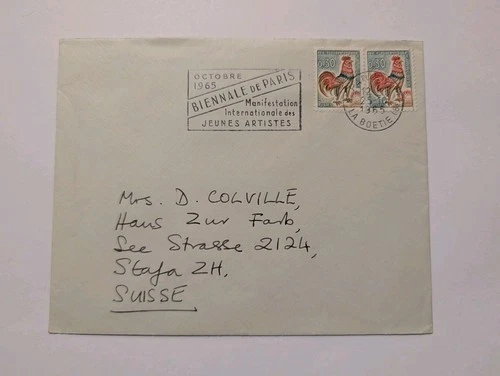 OCTOBRE
1965
BIENNALE DE PARIS
Manifestation
Internationale des
JEUNES ARTISTES
0,30
0,30
12
1965
LA BOETIE
Mrs. D. COLVILLE,
Haus Zur Farb,
See Strasse 2124,
Stafa ZH.
SUISSE